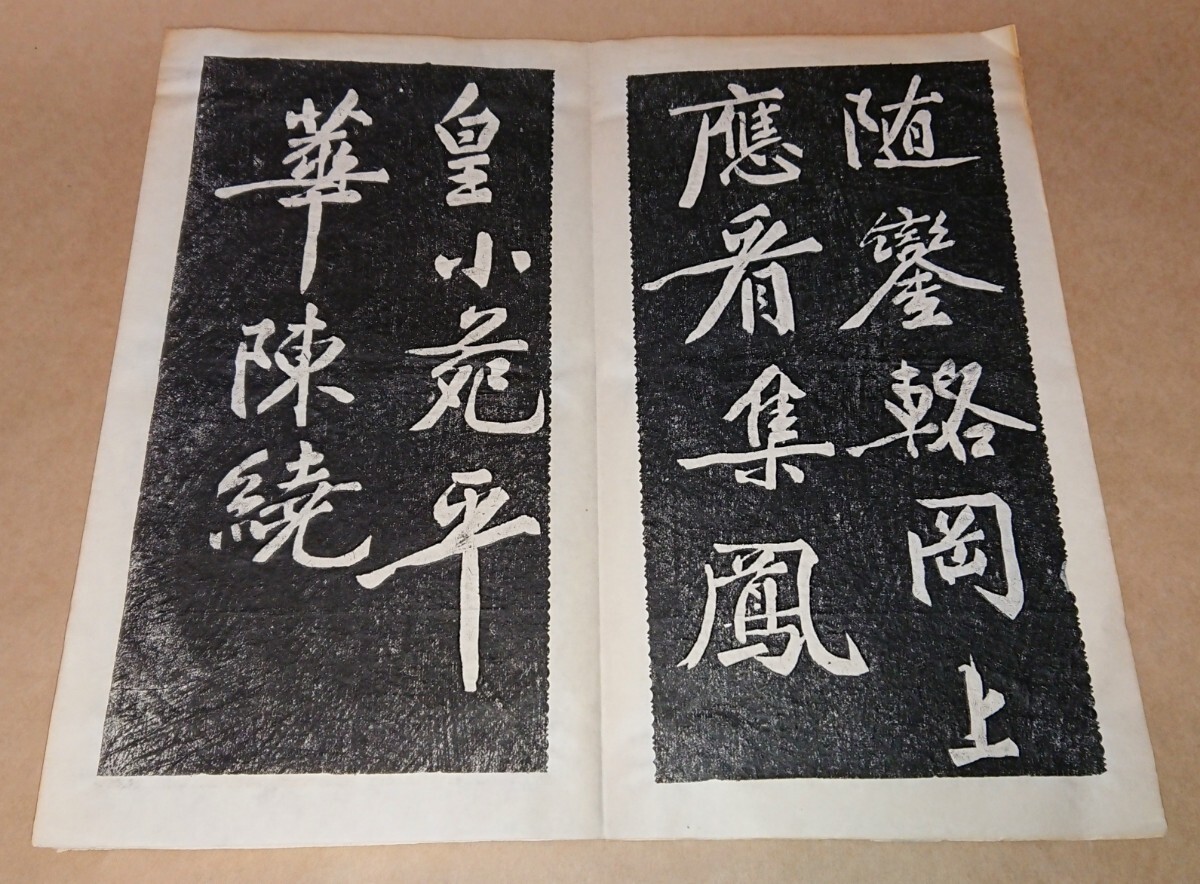 随鑾輅岡上
應看集鳳
皇小苑平
華陳繞